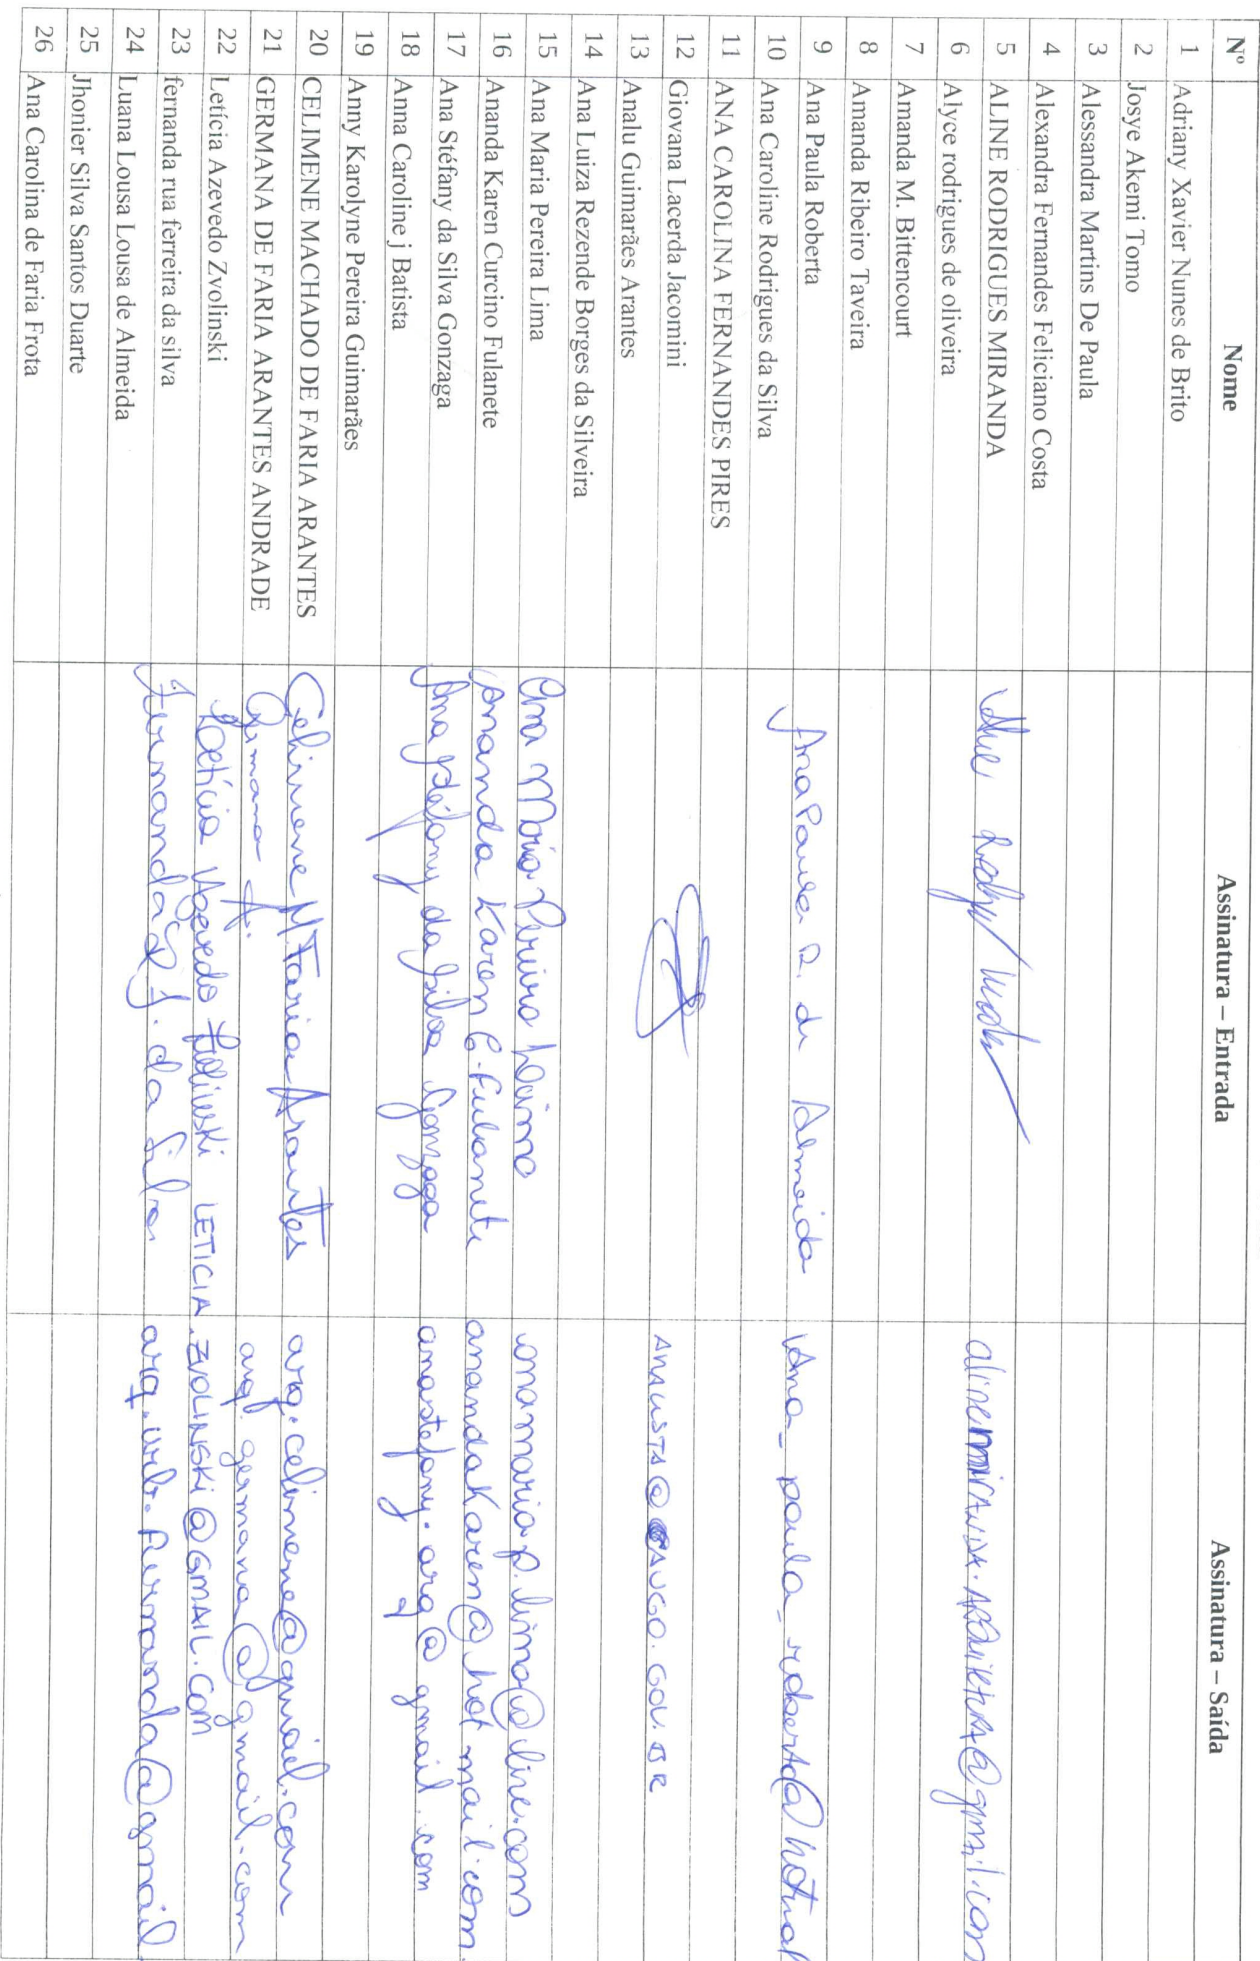 Nº Nome Assinatura – Entrada Assinatura – Saída
1 Adriany Xavier Nunes de Brito
2 Josye Akemi Tomo
3 Alessandra Martins De Paula
4 Alexandra Fernandes Feliciano Costa
5 ALINE RODRIGUES MIRANDA alinemiranda.arquitetura@gmail.com
6 Alyce rodrigues de oliveira
7 Amanda M. Bittencourt
8 Amanda Ribeiro Taveira
9 Ana Paula Roberta Ana Paula R. de Almeida Ana_paula_roberta@hotmail
10 Ana Caroline Rodrigues da Silva
11 ANA CAROLINA FERNANDES PIRES
12 Giovana Lacerda Jacomini ANALISTA@CAUGO.GOV.BR
13 Analu Guimarães Arantes
14 Ana Luiza Rezende Borges da Silveira
15 Ana Maria Pereira Lima Ana Maria Pereira Lima anamaria.p.lima@live.com
16 Ananda Karen Curcino Fulanete Ananda Karen C. Fulanete anandakaren@hotmail.com
17 Ana Stéfany da Silva Gonzaga Ana Stéfany da Silva Gonzaga anastefany.arq@gmail.com
18 Anna Caroline j Batista
19 Anny Karolyne Pereira Guimarães
20 CELIMENE MACHADO DE FARIA ARANTES Celimene M. Faria Arantes arq.celimene@gmail.com
21 GERMANA DE FARIA ARANTES ANDRADE Germana arq.germana@gmail.com
22 Letícia Azevedo Zvolinski Letícia Azevedo Zvolinski LETICIA.ZVOLINSKI@GMAIL.COM
23 fernanda rua ferreira da silva Fernanda R F. da Silva arq.urb.fernanda@gmail
24 Luana Lousa Lousa de Almeida
25 Jhonier Silva Santos Duarte
26 Ana Carolina de Faria Frota